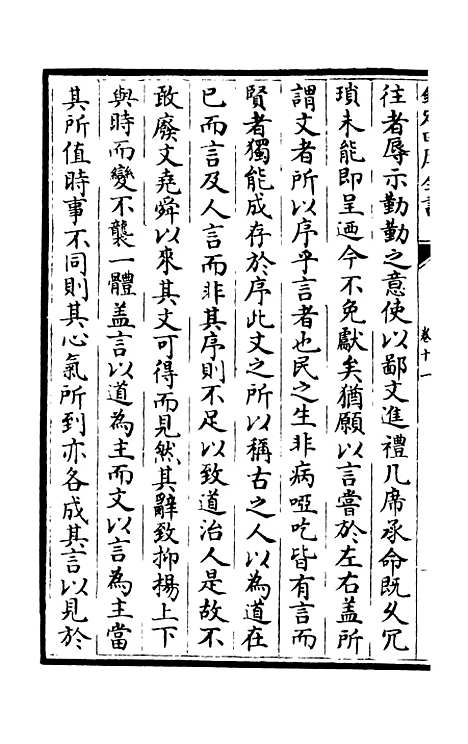 欽定四庫全書
卷十一
往者辱示勤勤之意使以鄙文進禮几席承命既乆冗
瑣未能即呈廼今不免獻矣猶願以言嘗於左右盖所
謂文者所以序乎言者也民之生非病啞吃皆有言而
賢者獨能成存於序此文之所以稱古之人以為道在
已而言及人言而非其序則不足以致道治人是故不
敢廢文堯舜以來其文可得而見然其辭致抑揚上下
與時而變不襲一體盖言以道為主而文以言為主當
其所值時事不同則其心氣所到亦各成其言以見於